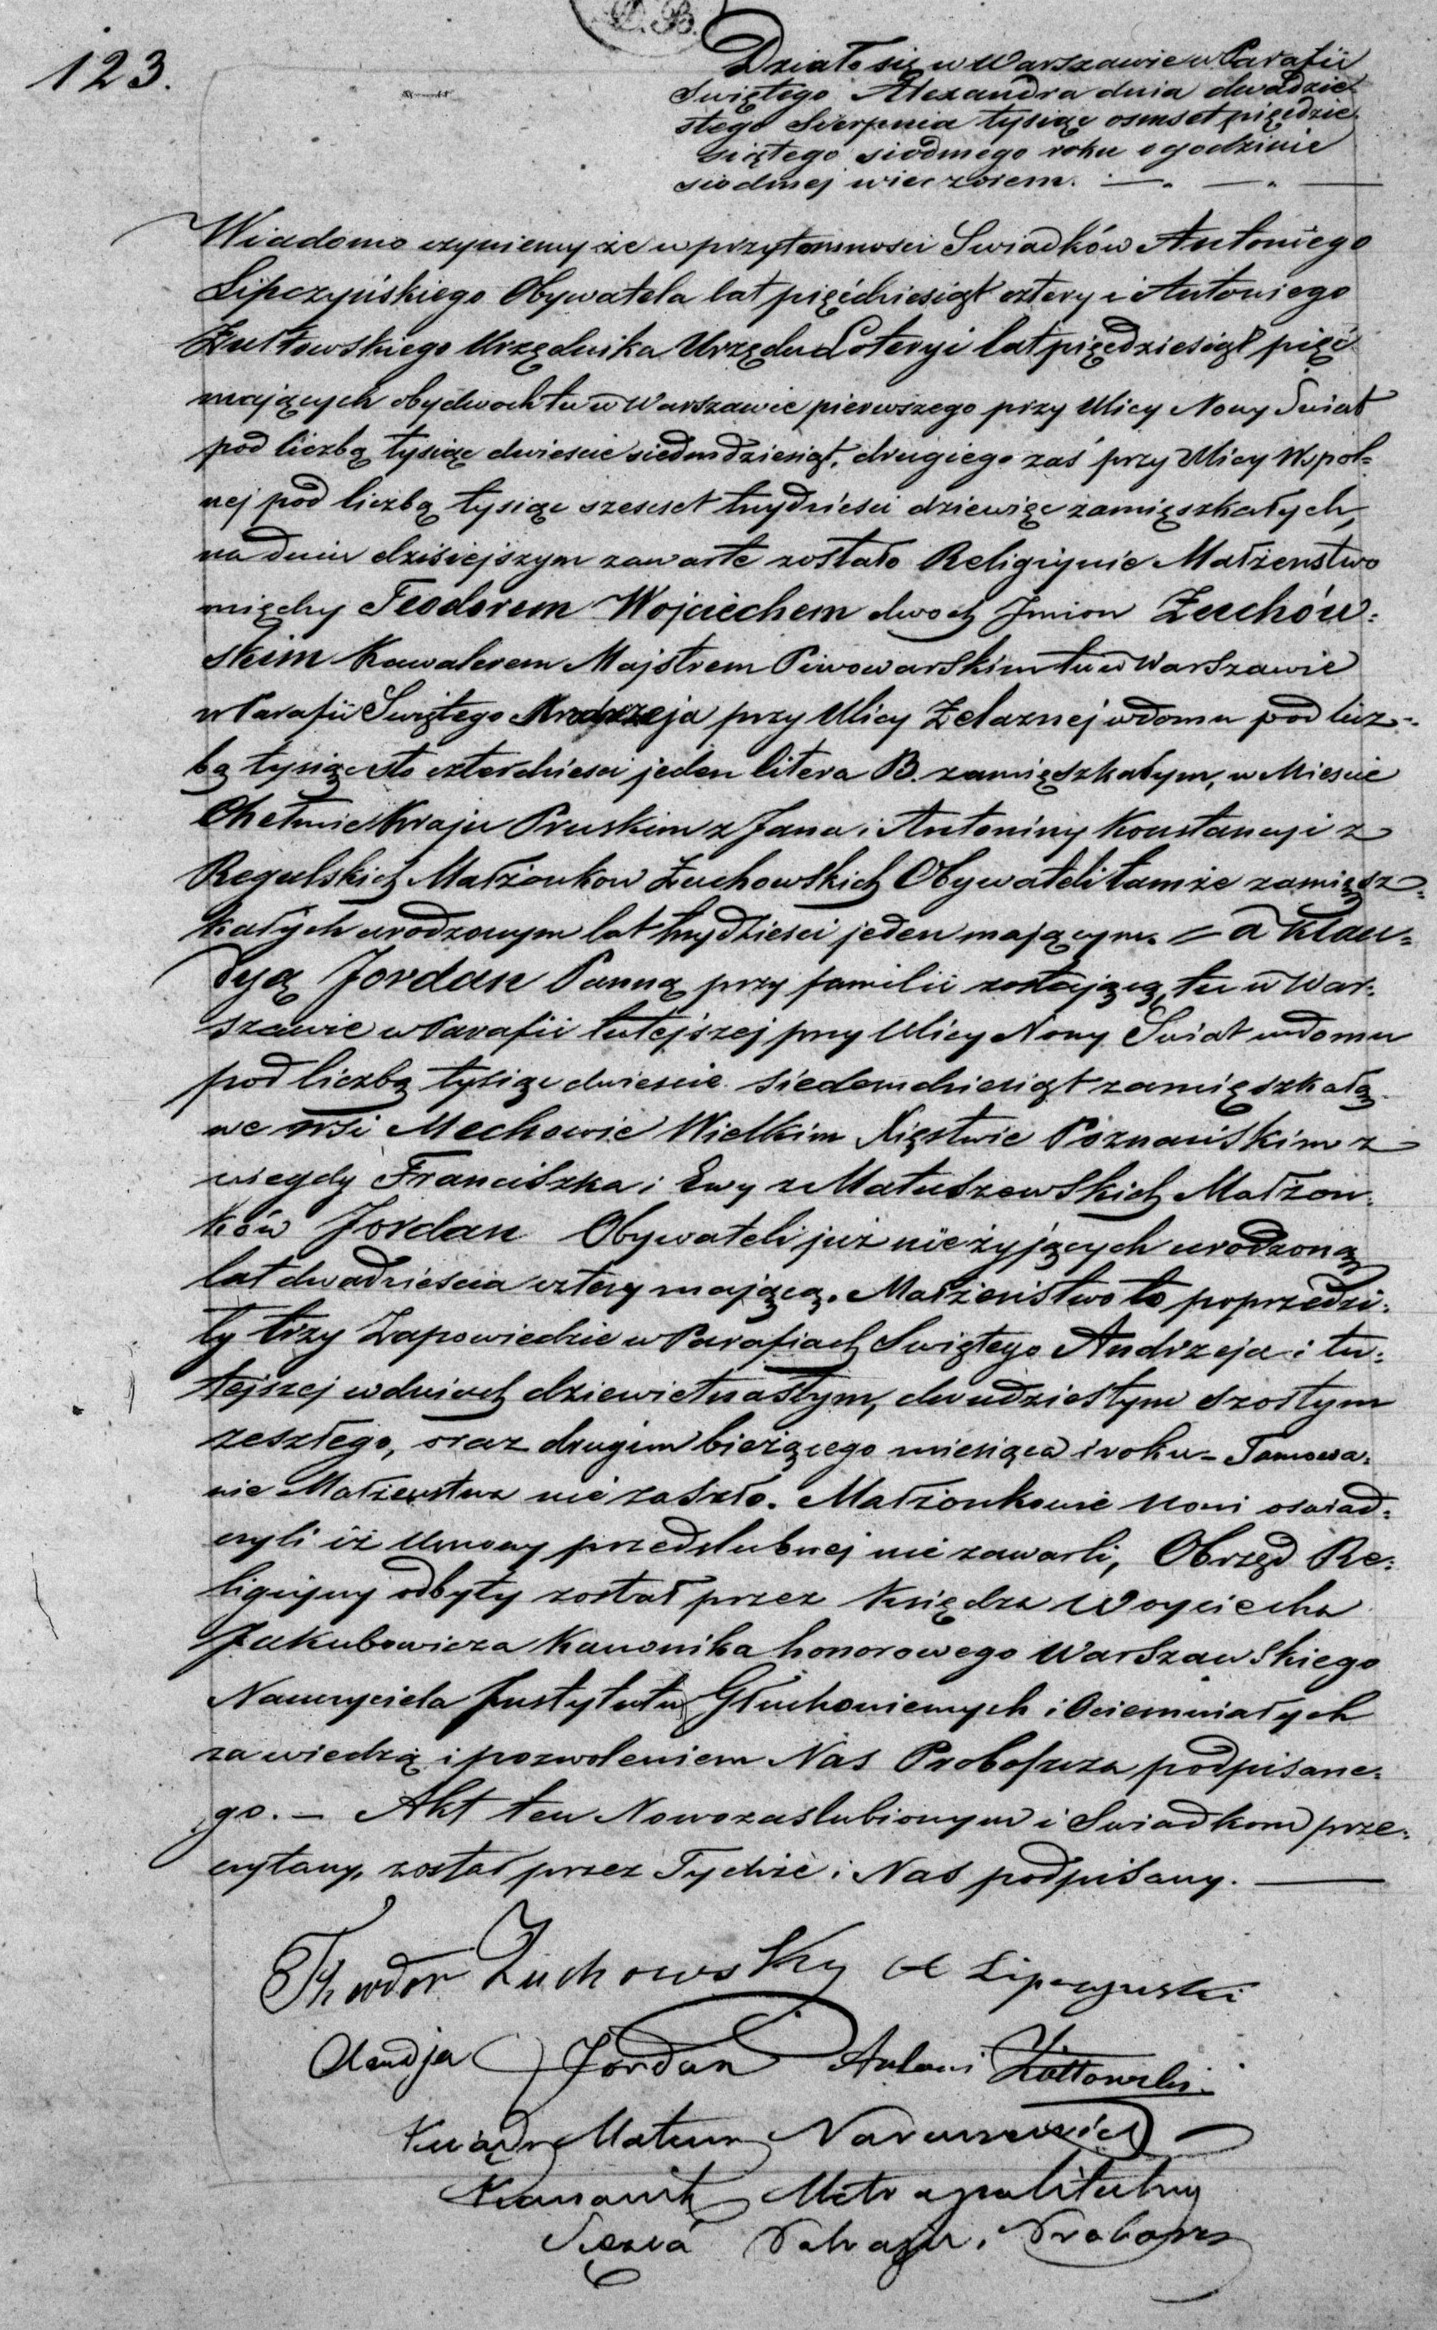 123.
Działo się w Warszawie w Parafii
Swiętego Alexandra dnia dwudzie-
stego Sierpnia tysiąc osmset pięćdzie-
siątego siodmego roku o godzinie
siodmej wieczorem. — . — . —
Wiadomo czyniemy że w przytomnosci Swiadków Antoniego
Lipczyńskiego Obywatela lat pięćdziesiąt cztery i Antoniego
Żułtowskiego Urzędnika Urzędu Loteryi lat pięćdziesiąt pięć
mających obydwoch tu w Warszawie pierwszego przy Ulicy Nowy Świat
pod liczbą tysiąc dwiescie siedmdziesiąt, drugiego zaś przy Ulicy Wspol-
nej pod liczbą tysiąc szescset trzydziesci dziewięc zamięszkałych,
na dniu dzisiejszym zawarte zostało Religijnie Małżenstwo
między Teodorem Wojciechem dwoch Jmion Żuchow-
skim Kawalerem Majstrem Piwowarskim tu w Warszawie
w Parafii Swiętego Andrzeja przy Ulicy Zelaznej w domu pod licz-
bą tysiąc sto czterdziesci jeden litera B. zamięszkałym, w Miescie
Chełmie Kraju Pruskim z Jana i Antoniny Konstancyi z
Regulskich Małżonkow Żuchowskich Obywateli tamże zamięsz-
kałych urodzonym lat trzydziesci jeden mającym. = a Klau-
dyą Jordan Panną przy familii zostającą, tu w War-
szawie w Parafii tutejszej przy Ulicy Nowy Swiat w domu
pod liczbą tysiąc dwiescie siedemdziesiąt zamięszkałą
we wsi Mechowie Wielkim Xięstwie Poznańskim z
niegdy Franciszka i Ewy z Matuszewskich Małżon-
ków Jordan Obywateli już nieżyjących urodzoną
lat dwadziescia cztery mającą. Małżeństwo to poprzedzi-
ły trzy Zapowiedzie w Parafiach Swiętego Andrzeja i tu-
tejszej w dniach dziewietnastym, dwudziestym szostym
zeszłego, oraz drugim bieżącego miesiąca i roku - Tamowa-
nie Małżenstwa nie zaszło. Małżonkowie Nowi oswiad-
czyli iż Umowy przedslubnej nie zawarli, Obrzęd Re-
ligijny odbyty został przez Księdza Woyciecha
Jakubowicza Kanonika honorowego Warszawskiego
Nauczyciela Jnstytutu Głuchoniemych i Ociemniałych
za wiedzą i pozwoleniem Nas Proboszcza podpisane-
go. — Akt ten Nowozaslubionym i Swiadkom prze-
czytany, został przez Tychże i Nas podpisany. —
Theodor Żuchowsky A Lipczynski
Claudja Jordan Antoni Żółtowski.
Ksiądz Mateusz Naruszewicz
Kanonik Metropolitalny
Proboszcz